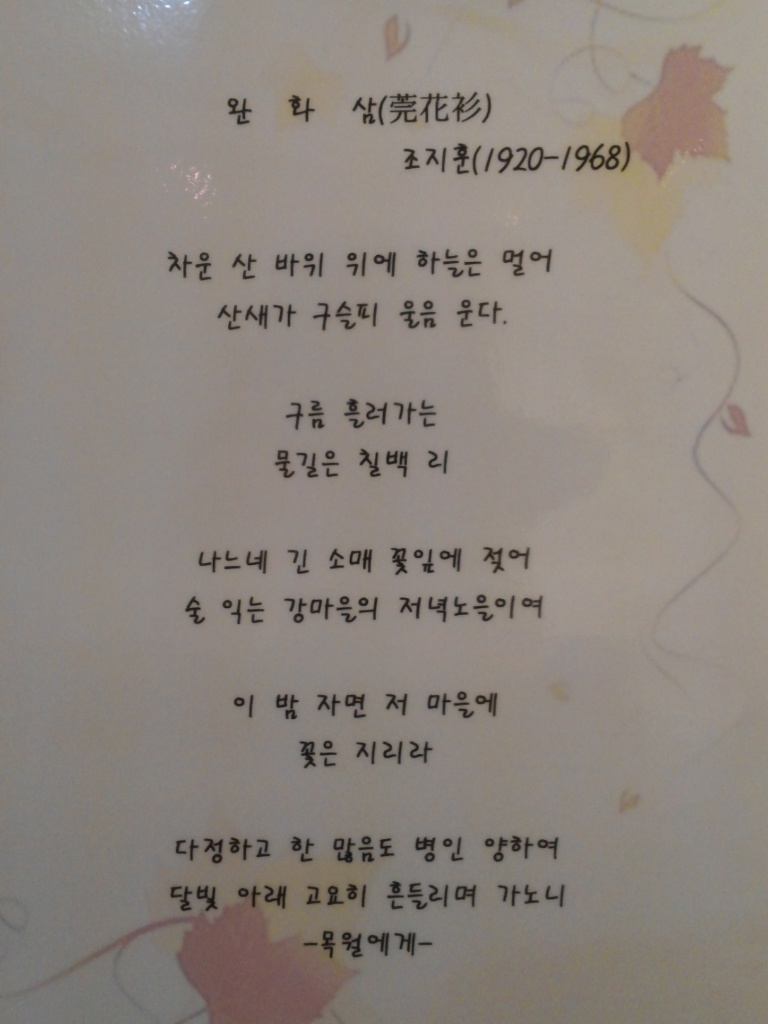 완 화 삼(莞花衫)
조지훈(1920-1968)
차운 산 바위 위에 하늘은 멀어
산새가 구슬피 울음 운다.
구름 흘러가는
물길은 칠백 리
나느네 긴 소매 꽃잎에 젖어
술 익는 강마을의 저녁노을이여
이 밤 자면 저 마을에
꽃은 지리라
다정하고 한 많음도 병인 양하여
달빛 아래 고요히 흔들리며 가노니
-목월에게-